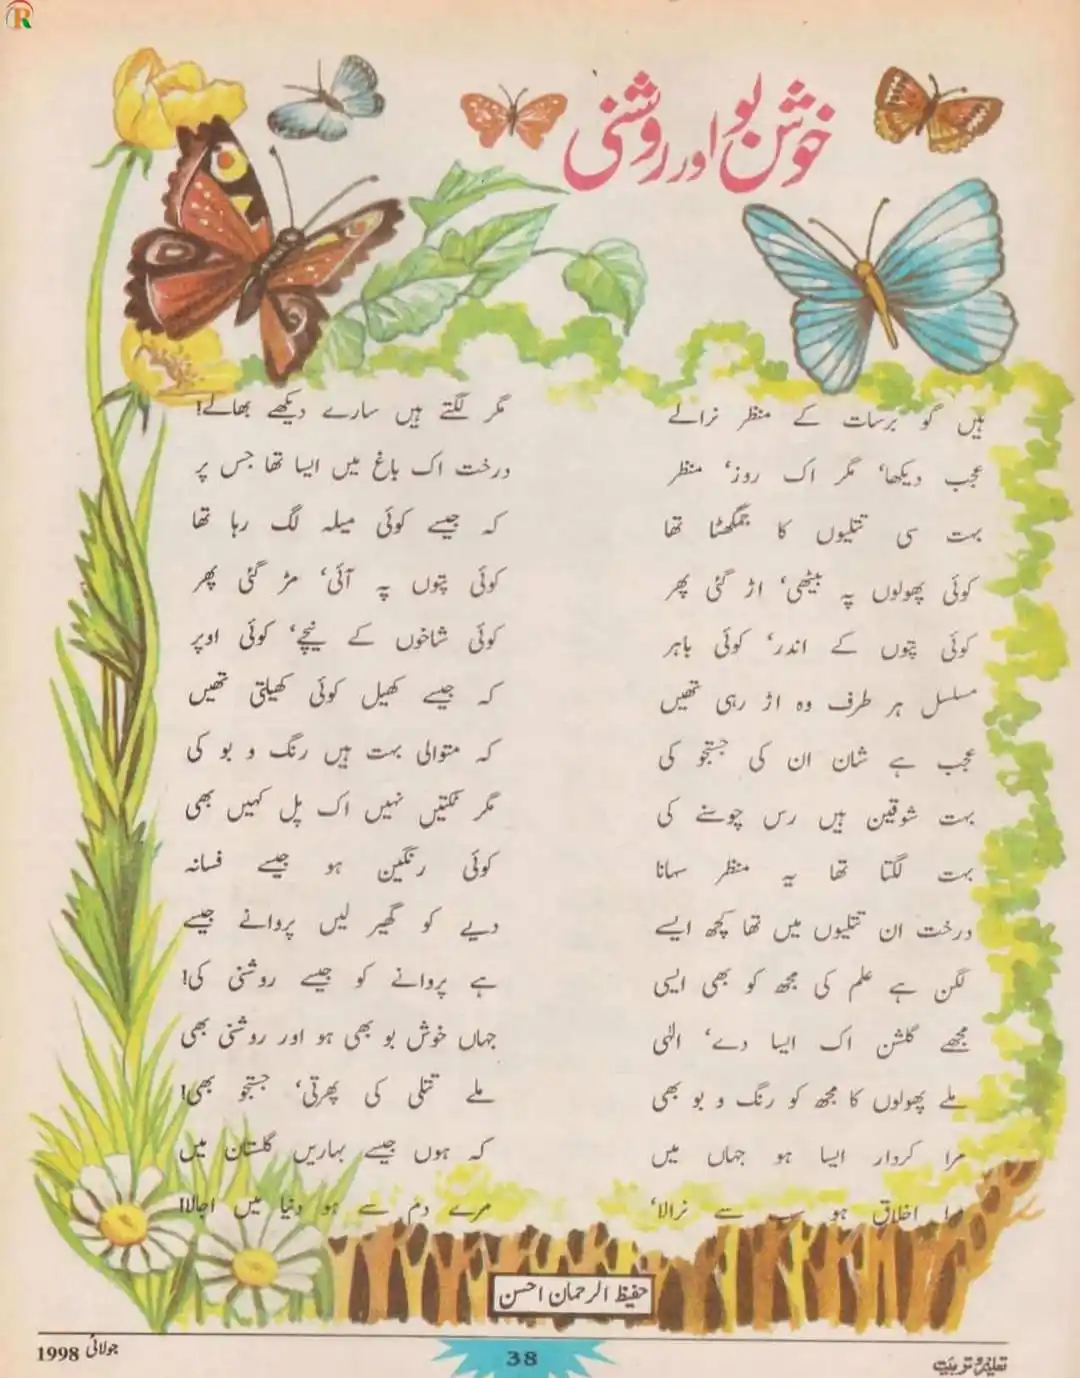 خوش بو اور روشنی
ہیں گو برسات کے منظر نرالے
مگر لگتے ہیں سارے دیکھے بھالے!
عجب دیکھا، مگر اک روز، منظر
درخت اک باغ میں ایسا تھا جس پر
بہت سی تتلیوں کا جمگھٹا تھا
کہ جیسے کوئی میلہ لگ رہا تھا
کوئی پھولوں پہ بیٹھی، اڑ گئی پھر
کوئی پتوں پہ آئی، مڑ گئی پھر
کوئی پتوں کے اندر، کوئی باہر
کوئی شاخوں کے نیچے، کوئی اوپر
مسلسل ہر طرف وہ اڑ رہی تھیں
کہ جیسے کھیل کوئی کھیلتی تھیں
عجب ہے شان ان کی جستجو کی
کہ متوالی بہت ہیں رنگ و بو کی
بہت شوقین ہیں رس چوسنے کی
مگر ٹکتیں نہیں اک پل کہیں بھی
بہت لگتا تھا یہ منظر سہانا
کوئی رنگین ہو جیسے فسانہ
درخت ان تتلیوں میں تھا کچھ ایسے
دیے کو گھیر لیں پروانے جیسے
لگن ہے علم کی مجھ کو بھی ایسی
ہے پروانے کو جیسے روشنی کی!
مجھے گلشن اک ایسا دے، الٰہی
جہاں خوش بو بھی ہو اور روشنی بھی
ملے پھولوں کا مجھ کو رنگ و بو بھی
ملے تتلی کی پھرتی، جستجو بھی!
مرا کردار ایسا ہو جہاں میں
کہ ہوں جیسے بہاریں گلستان میں
مرا اخلاق ہو سب سے نرالا،
مرے دم سے ہو دنیا میں اجالا!
حفیظ الرحمان احسن
تعلیم و تربیت
38
جولائی 1998
R